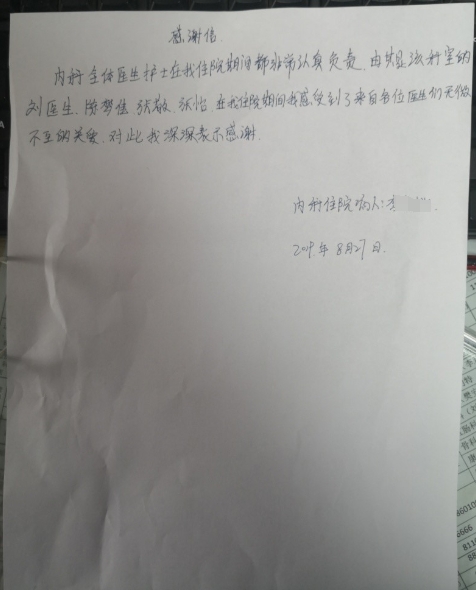 感谢信
内科全体医生护士在我住院期间都非常认真负责.由其是该科室的
刘医生. 梦佳 张敏. 张怡. 在我住院期间我感受到了来自各位医生们无微
不至的关爱. 对此我深深表示感谢.
内科住院病人:李
2019年8月27日.
8111